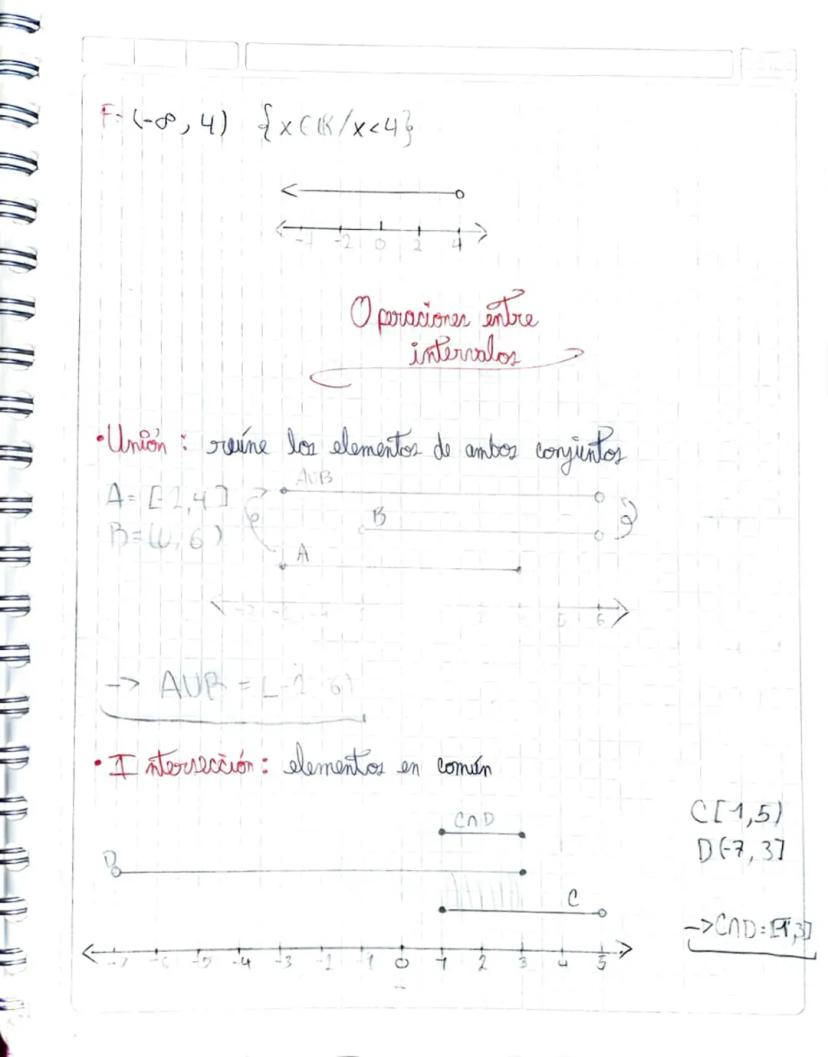 F= (-∞, 4) {x∈ℝ/x<4}
-2 0 2 4
Operaciones entre
intervalos
• Unión: reúne los elementos de ambos conjuntos
A∪B
A= [-2,4]
B
B=(0,6)
A
6
-> A∪B = [-2,6)
• Intersección: elementos en común
C[1,5)
C∩D
D(-7,3]
D
C
->C∩D=[1,3]
-7 -6 -5 -4 -3 -2 -1 0 1 2 3 4 5